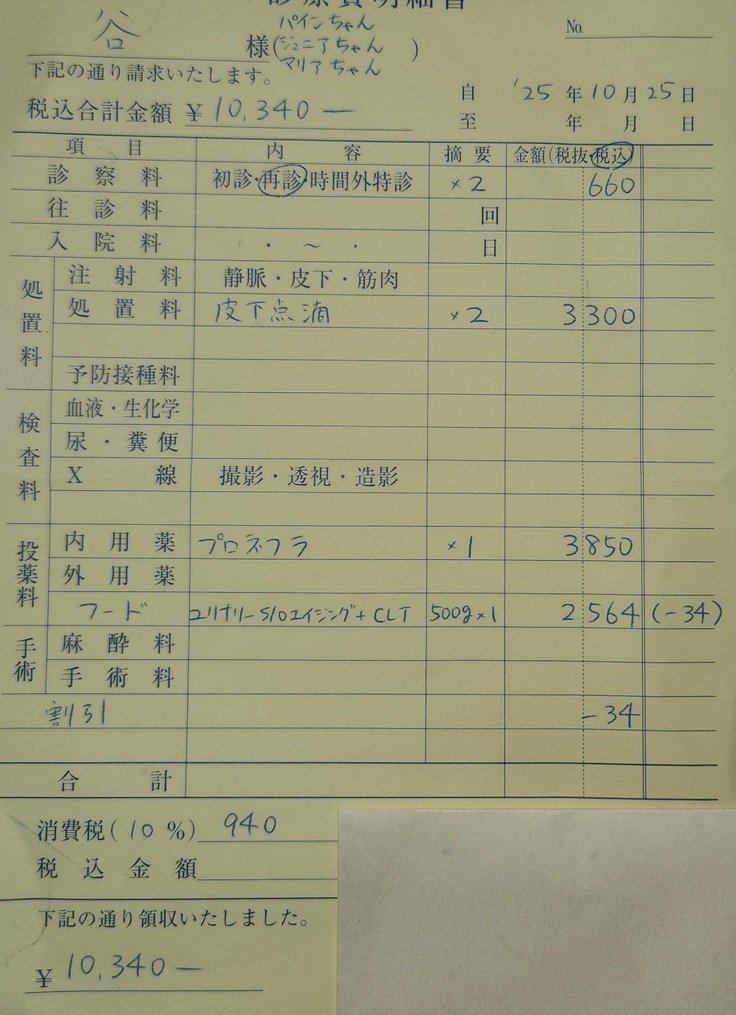 診療費明細書
谷 様(パインちゃん
ジュニアちゃん
マリアちゃん)
No.
下記の通り請求いたします。
税込合計金額 ¥10,340—
自 '25年10月25日
至 年 月 日
項目 内容 摘要 金額(税抜・税込)
診察料 初診・再診・時間外特診 ×2 660
往診料 回
入院料 ・ ~ ・ 日
処置料
注射料 静脈・皮下・筋肉
処置料 皮下点滴 ×2 3300
予防接種料
検査料
血液・生化学
尿・糞便
X線 撮影・透視・造影
投薬料
内用薬 プロネフラ ×1 3850
外用薬
フード ユリナリーS/Oエイジング+CLT 500g×1 2564 (-34)
手術
麻酔料
手術料
割引 -34
合計
消費税(10%) 940
税込金額
下記の通り領収いたしました。
¥10,340—